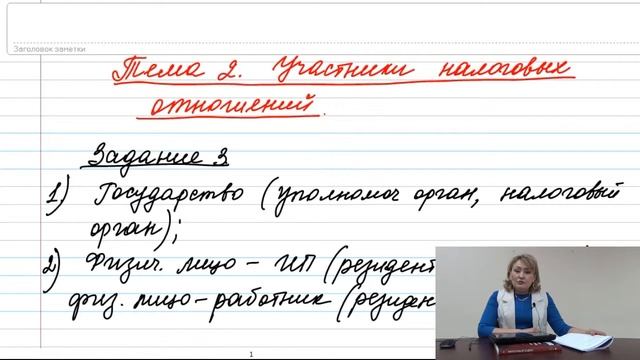 Заголовок заметки
Тема 2. Участники налоговых
отношений.
Задание 3
1) Государство (уполномоч орган, налоговый
орган);
2) Физич. лицо - ИП (резидент
физ. лицо - работник (резиден
1